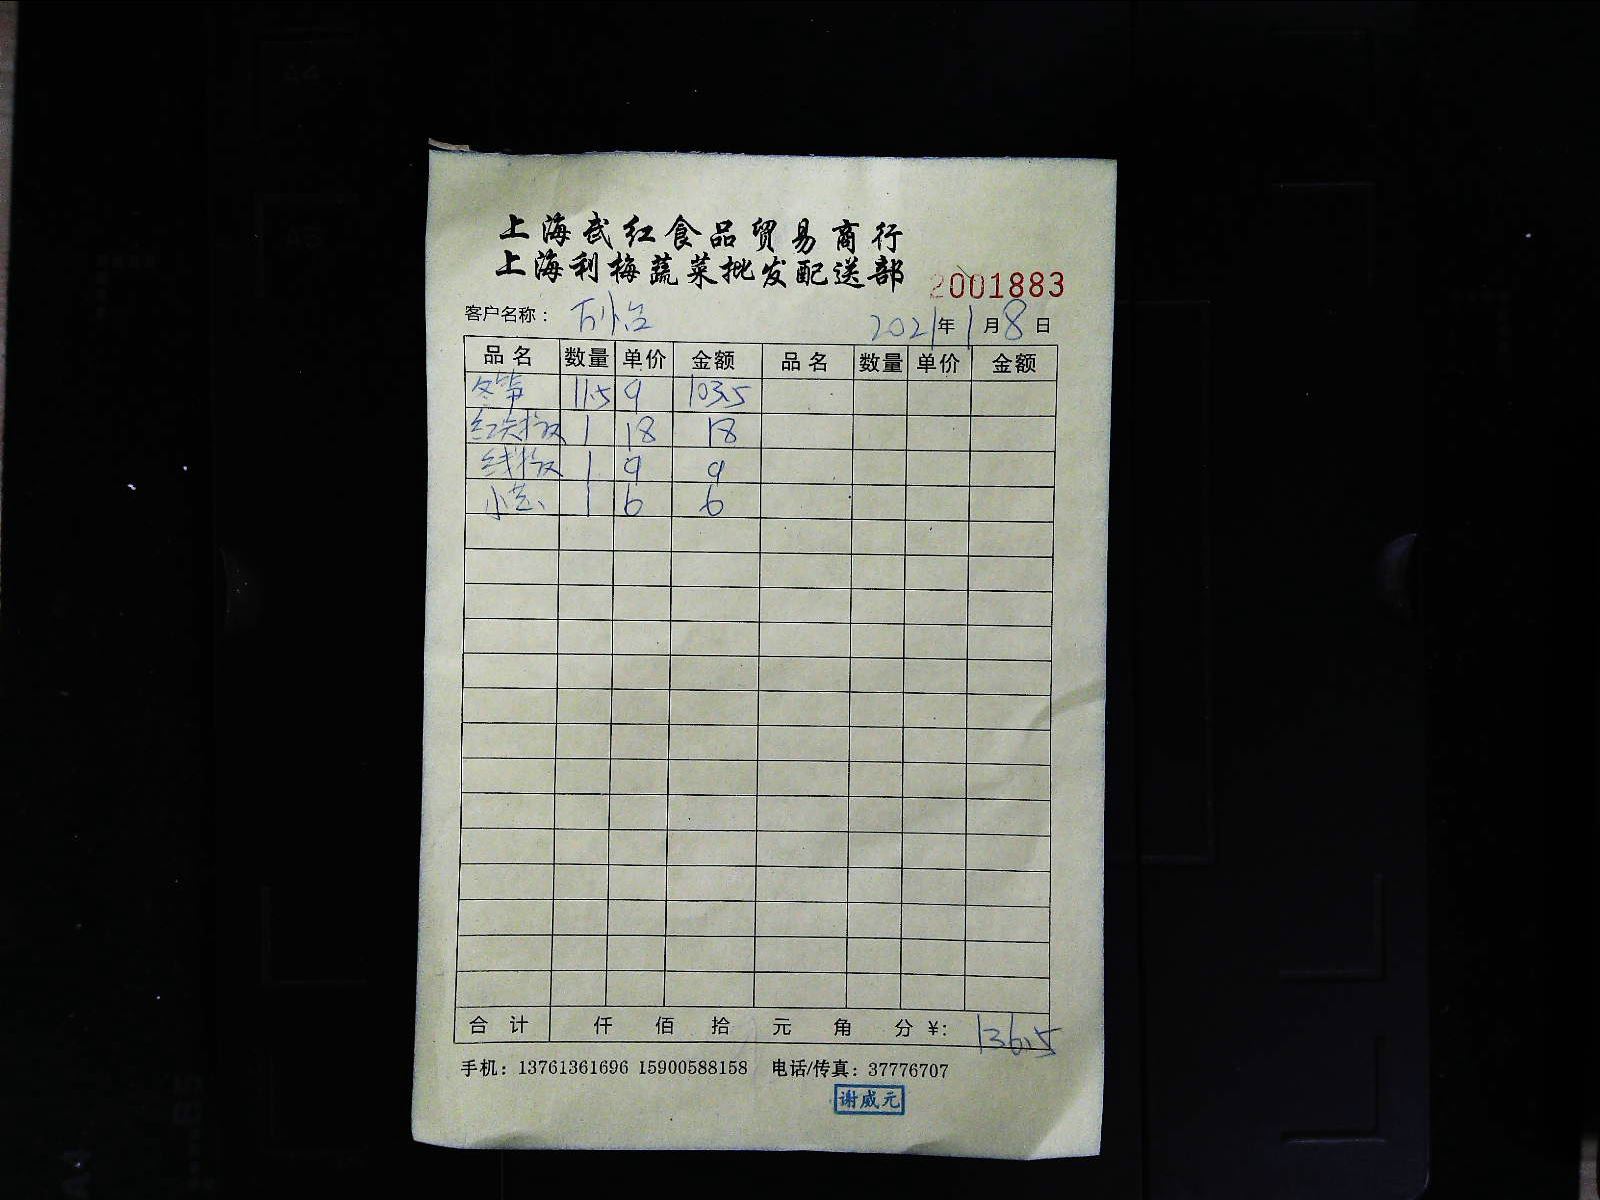 上海武红食品贸易商行
上海利梅蔬菜批发配送部
2001883
客户名称： 2021年1月8日
品名 数量 单价 金额 品名 数量 单价 金额
冬笋 11.5 9 103.5
红尖椒 1 18 18
线椒 1 9 9
小 1 6 6
合计 仟 佰 拾 元 角 分 ¥: 136.5
手机：13761361696 15900588158 电话/传真：37776707
谢威元